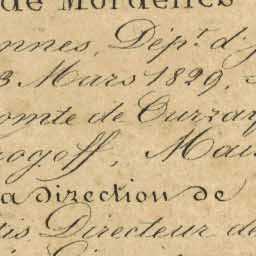 de Mordelles
nnes, Dépt. d'
3 Mars 1829,
omte de Curzay
rogoff, Mai
a direction de
tis Directeur de